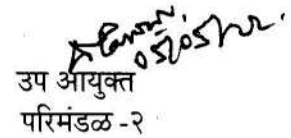 05/05/22.
उप आयुक्त
परिमंडळ -२